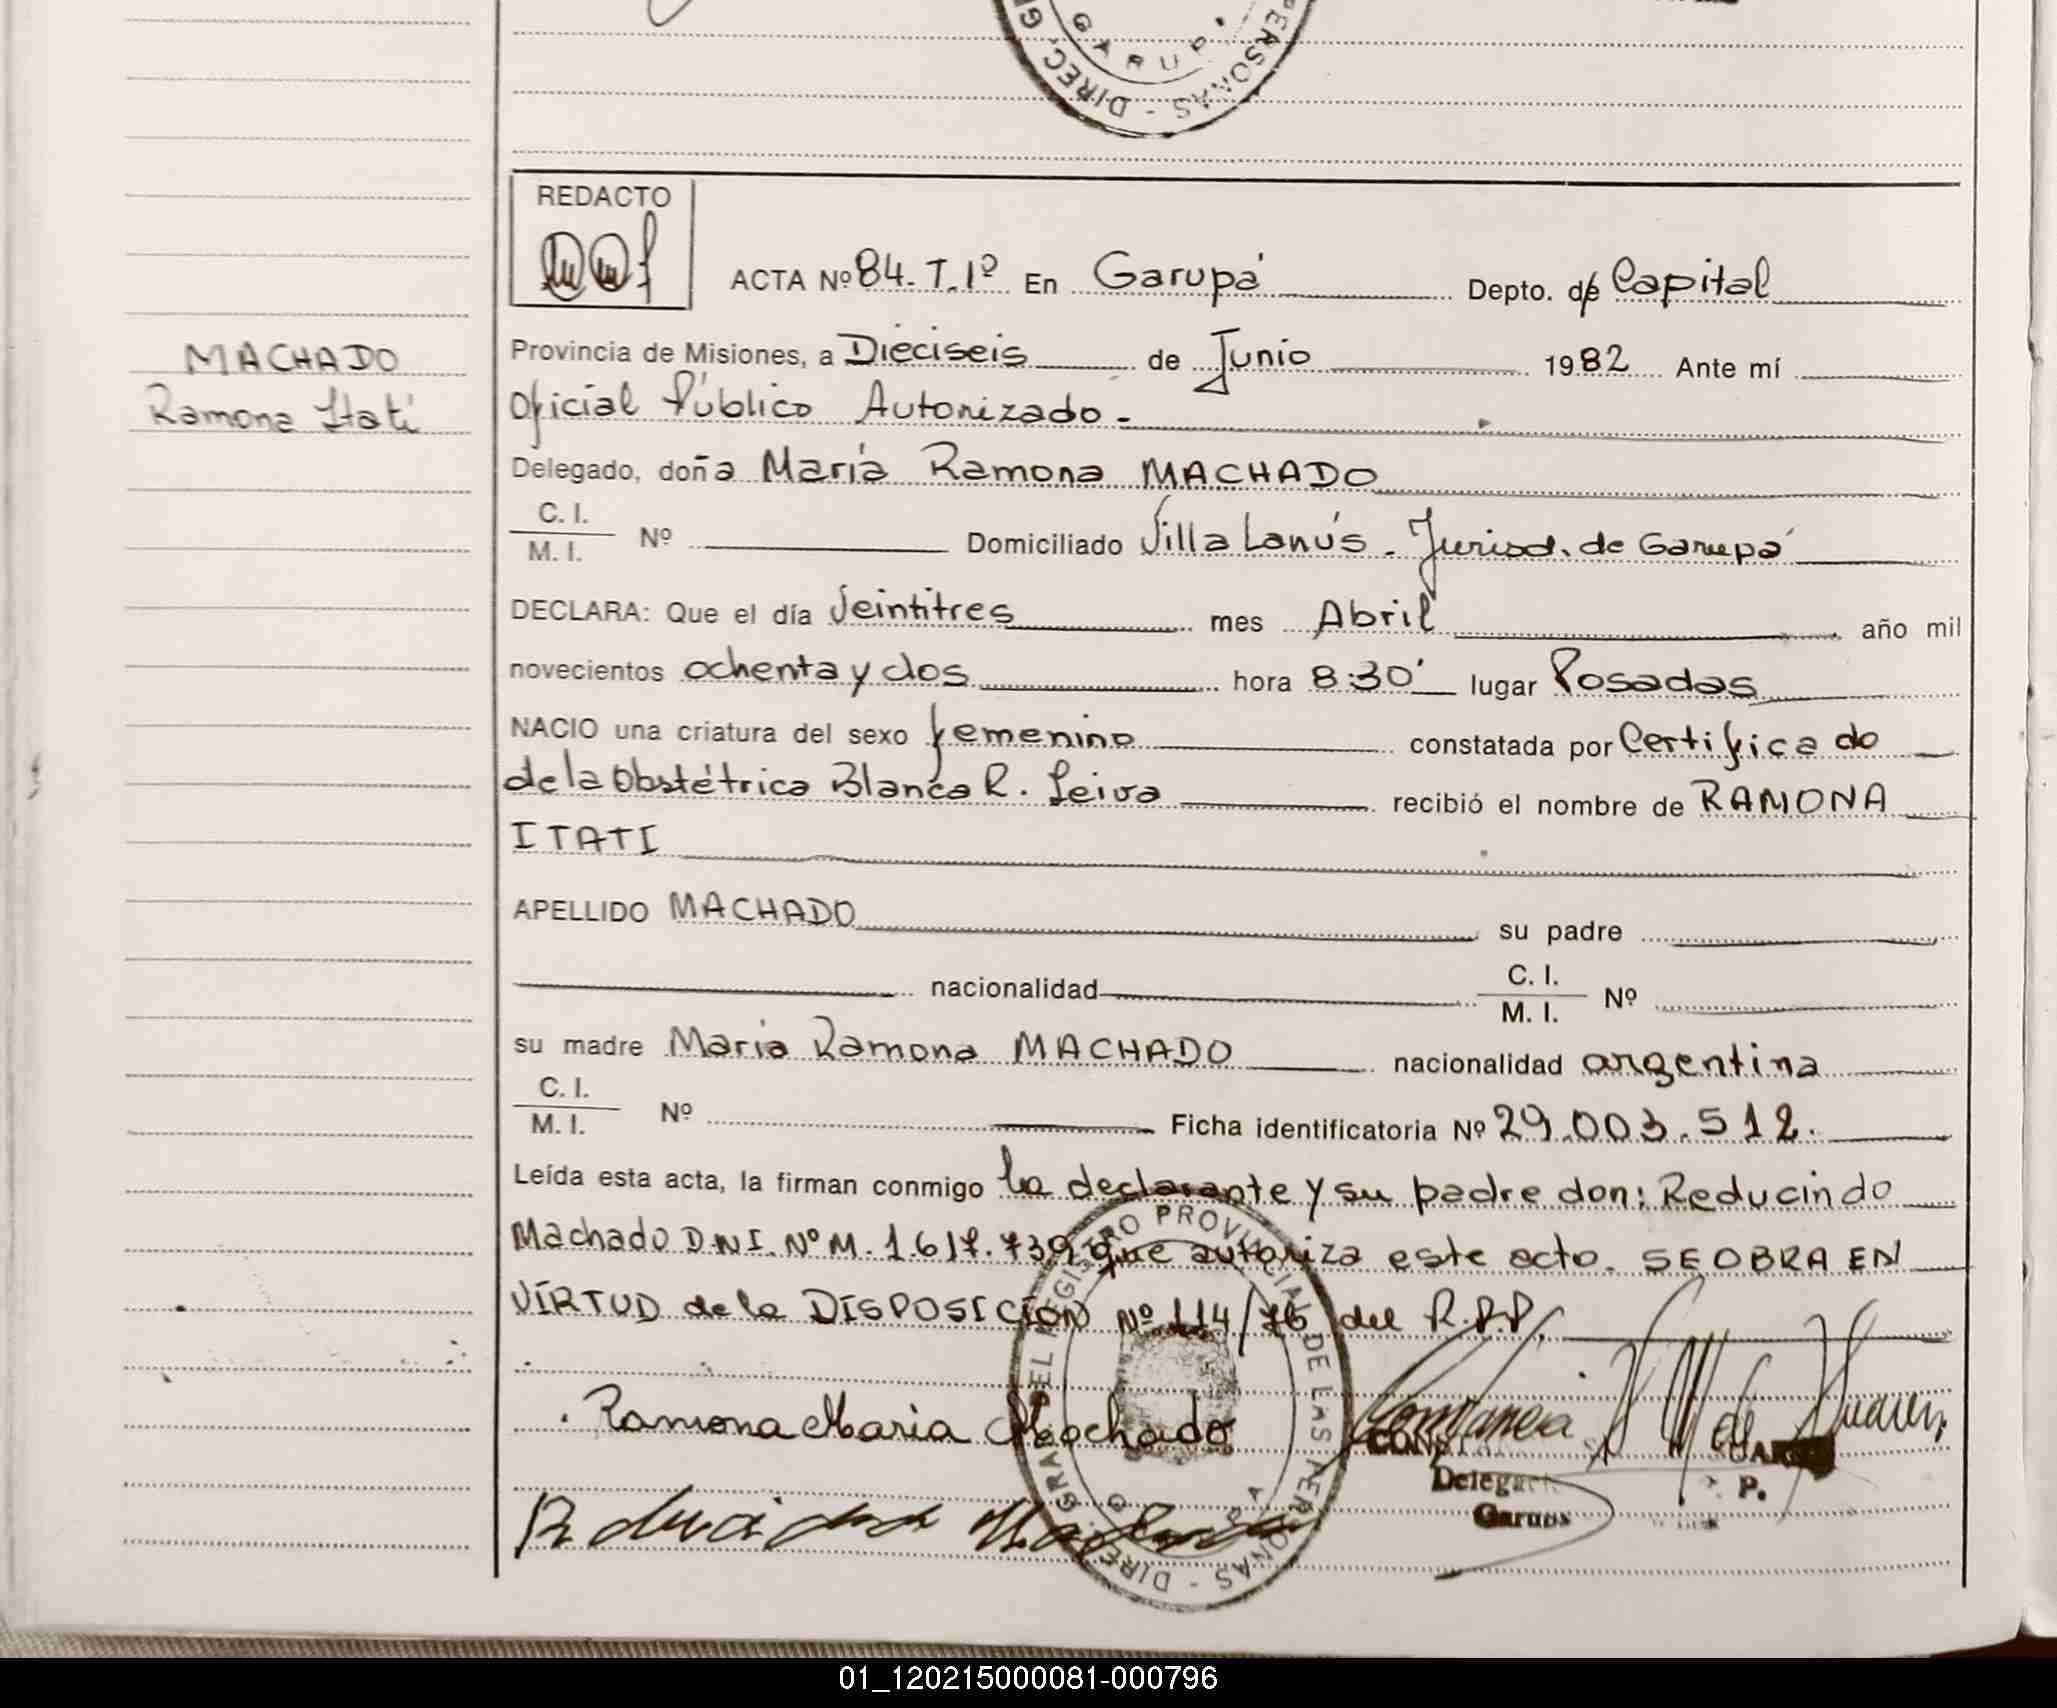 PERSONAS - DIREC. G
GARUP
REDACTO
ACTA Nº 84. T. 1º En Garupá Depto. de Capital
MACHADO
Ramona Itatí
Provincia de Misiones, a Dieciseis de Junio 1982 Ante mí
Oficial Público Autorizado -
Delegado, doña María Ramona MACHADO
C. I.
M. I. Nº Domiciliado Villa Lanús - Jurisd. de Garupá
DECLARA: Que el día Veintitres mes Abril año mil
novecientos ochenta y dos hora 8:30' lugar Posadas
NACIO una criatura del sexo femenino constatada por Certificado
de la Obstétrica Blanca R. Leiva recibió el nombre de RAMONA
ITATI
APELLIDO MACHADO su padre
nacionalidad C. I.
M. I. Nº
su madre María Ramona MACHADO nacionalidad argentina
C. I.
M. I. Nº Ficha identificatoria Nº 29.003.512.
Leída esta acta, la firman conmigo la declarante y su padre don: Reducindo
Machado D.N.I. Nº M. 1.617.739 que autoriza este acto. SE OBRA EN
VIRTUD de la DISPOSICION Nº 114/76 del R.P.P.
GRAL. DEL REGISTRO PROVINCIAL DE LAS PERSONAS - DIREC.
Ramona Maria Machado
Delegad
Garupa
P.
Reducindo Machado
01_120215000081-000796